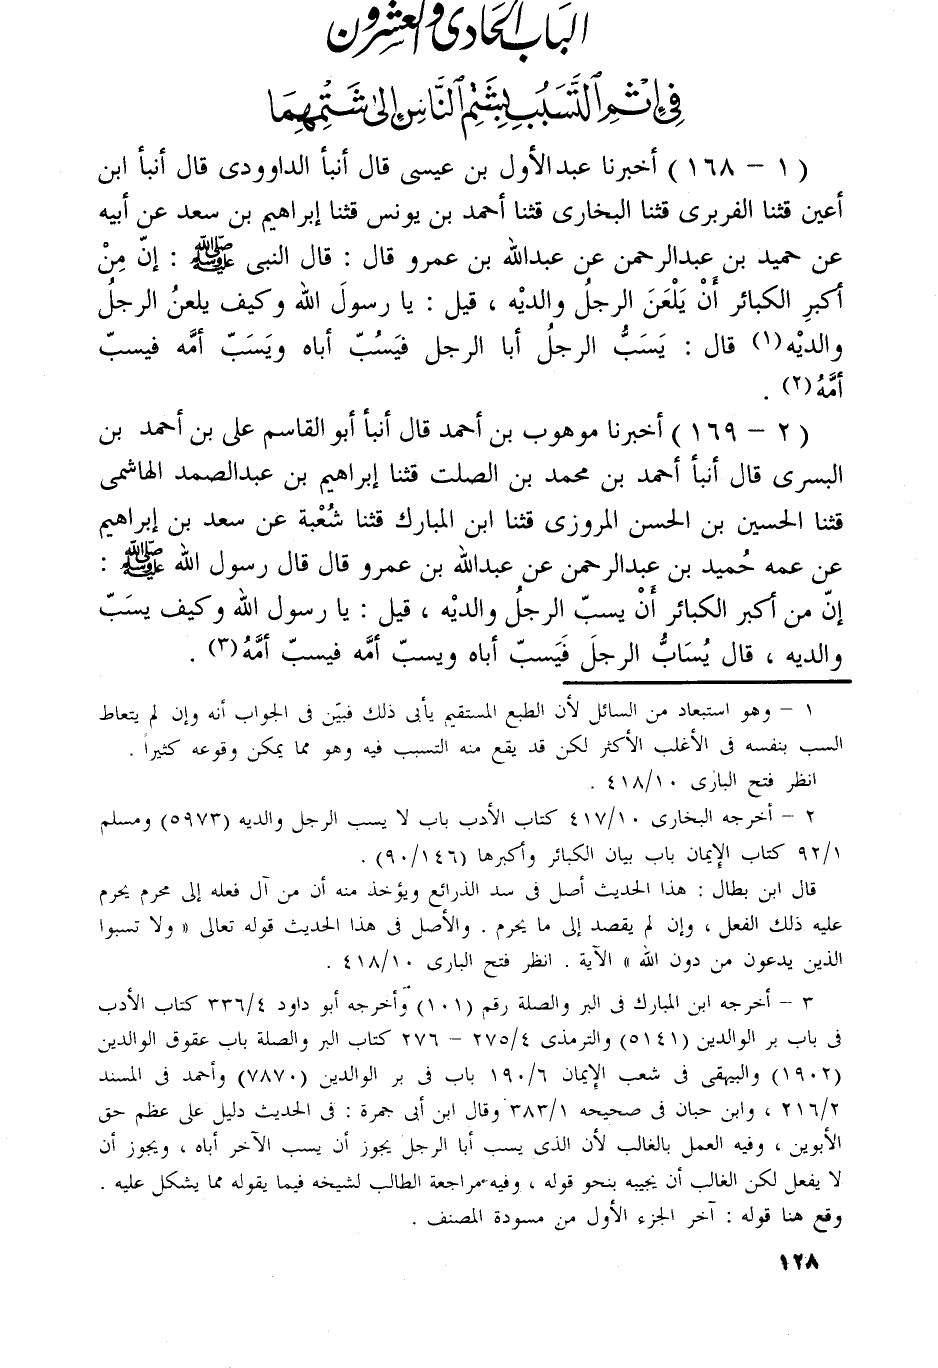 الباب الحادى والعشرون
فِي إِثْمِ ٱلتَّسَبُّبِ بِشَتْمِ ٱلنَّاسِ إِلىٰ شَتْمِهِمَا
( ١ - ١٦٨ ) أخبرنا عبدالأول بن عيسى قال أنبأ الداوودى قال أنبأ ابن
أعين قثنا الفربرى قثنا البخارى قثنا أحمد بن يونس قثنا إبراهيم بن سعد عن أبيه
عن حميد بن عبدالرحمن عن عبدالله بن عمرو قال : قال النبى ﷺ : إنّ مِنْ
أكبرِ الكبائر أَنْ يَلْعَنَ الرجلُ والديْه ، قيل : يا رسولَ الله وكيف يلعنُ الرجلُ
والديْه(١) قال : يَسَبُّ الرجلُ أبا الرجل فيَسُبّ أباه ويَسَبّ أمَّه فيسبّ
أمَّهُ(٢) .
( ٢ - ١٦٩ ) أخبرنا موهوب بن أحمد قال أنبأ أبو القاسم على بن أحمد بن
البسرى قال أنبأ أحمد بن محمد بن الصلت قثنا إبراهيم بن عبدالصمد الهاشمى
قثنا الحسين بن الحسن المروزى قثنا ابن المبارك قثنا شُعْبة عن سعد بن إبراهيم
عن عمه حُميد بن عبدالرحمن عن عبدالله بن عمرو قال قال رسول الله ﷺ :
إنّ من أكبر الكبائر أَنْ يسبّ الرجلُ والديْه ، قيل : يا رسول الله وكيف يسَبّ
والديه ، قال يُسَابُّ الرجلَ فَيَسبّ أباه ويسبّ أمَّه فيسبّ أمَّهُ(٣) .
١ - وهو استبعاد من السائل لأن الطبع المستقيم يأبى ذلك فبيّن فى الجواب أنه وإن لم يتعاط
السب بنفسه فى الأغلب الأكثر لكن قد يقع منه التسبب فيه وهو مما يمكن وقوعه كثيراً .
انظر فتح البارى ٤١٨/١٠ .
٢ - أخرجه البخارى ٤١٧/١٠ كتاب الأدب باب لا يسب الرجل والديه (٥٩٧٣) ومسلم
٩٢/١ كتاب الإيمان باب بيان الكبائر وأكبرها (٩٠/١٤٦) .
قال ابن بطال : هذا الحديث أصل فى سد الذرائع ويؤخذ منه أن من آل فعله إلى محرم يحرم
عليه ذلك الفعل ، وإن لم يقصد إلى ما يحرم . والأصل فى هذا الحديث قوله تعالى « ولا تسبوا
الذين يدعون من دون الله » الآية . انظر فتح البارى ٤١٨/١٠ .
٣ - أخرجه ابن المبارك فى البر والصلة رقم (١٠١) وأخرجه أبو داود ٣٣٦/٤ كتاب الأدب
فى باب بر الوالدين (٥١٤١) والترمذى ٢٧٥/٤ - ٢٧٦ كتاب البر والصلة باب عقوق الوالدين
(١٩٠٢) والبيهقى فى شعب الإيمان ١٩٠/٦ باب فى بر الوالدين (٧٨٧٠) وأحمد فى المسند
٢١٦/٢ ، وابن حبان فى صحيحه ٣٨٣/١ وقال ابن أبى جمرة : فى الحديث دليل على عظم حق
الأبوين ، وفيه العمل بالغالب لأن الذى يسب أبا الرجل يجوز أن يسب الآخر أباه ، ويجوز أن
لا يفعل لكن الغالب أن يجيبه بنحو قوله ، وفيه مراجعة الطالب لشيخه فيما يقوله مما يشكل عليه .
وقع هنا قوله : آخر الجزء الأول من مسودة المصنف .
١٢٨